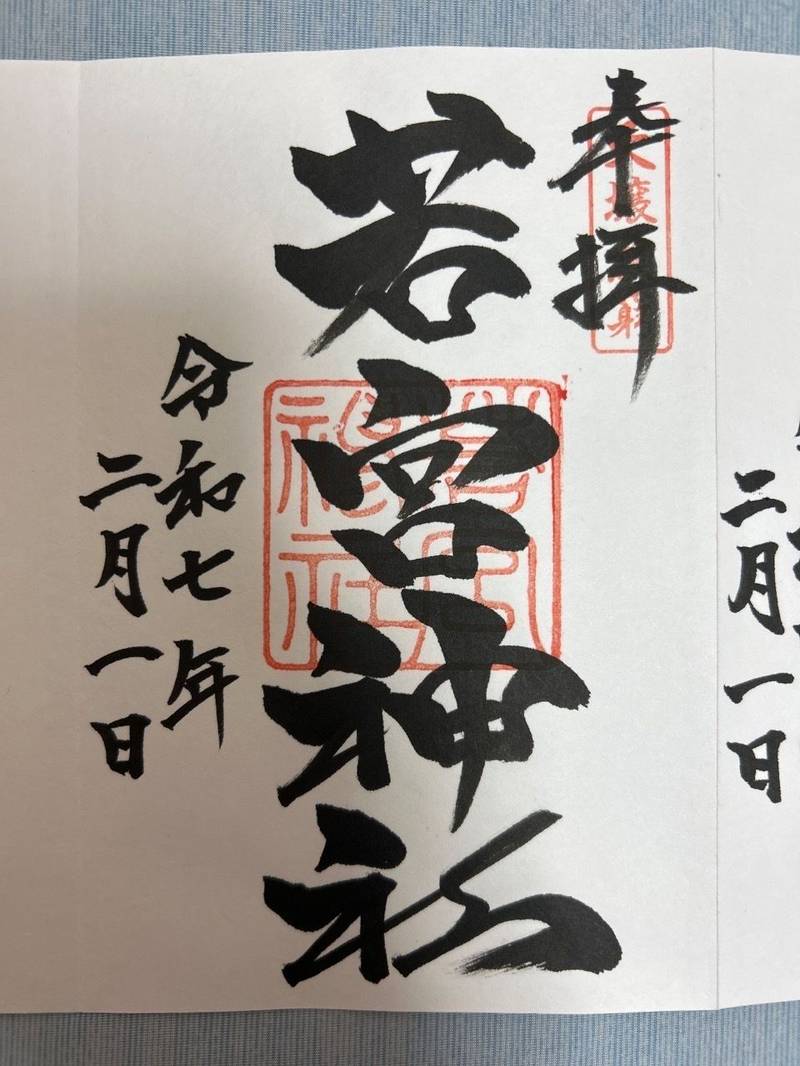 奉拝
若宮神社
令和七年
二月一日
二月一日